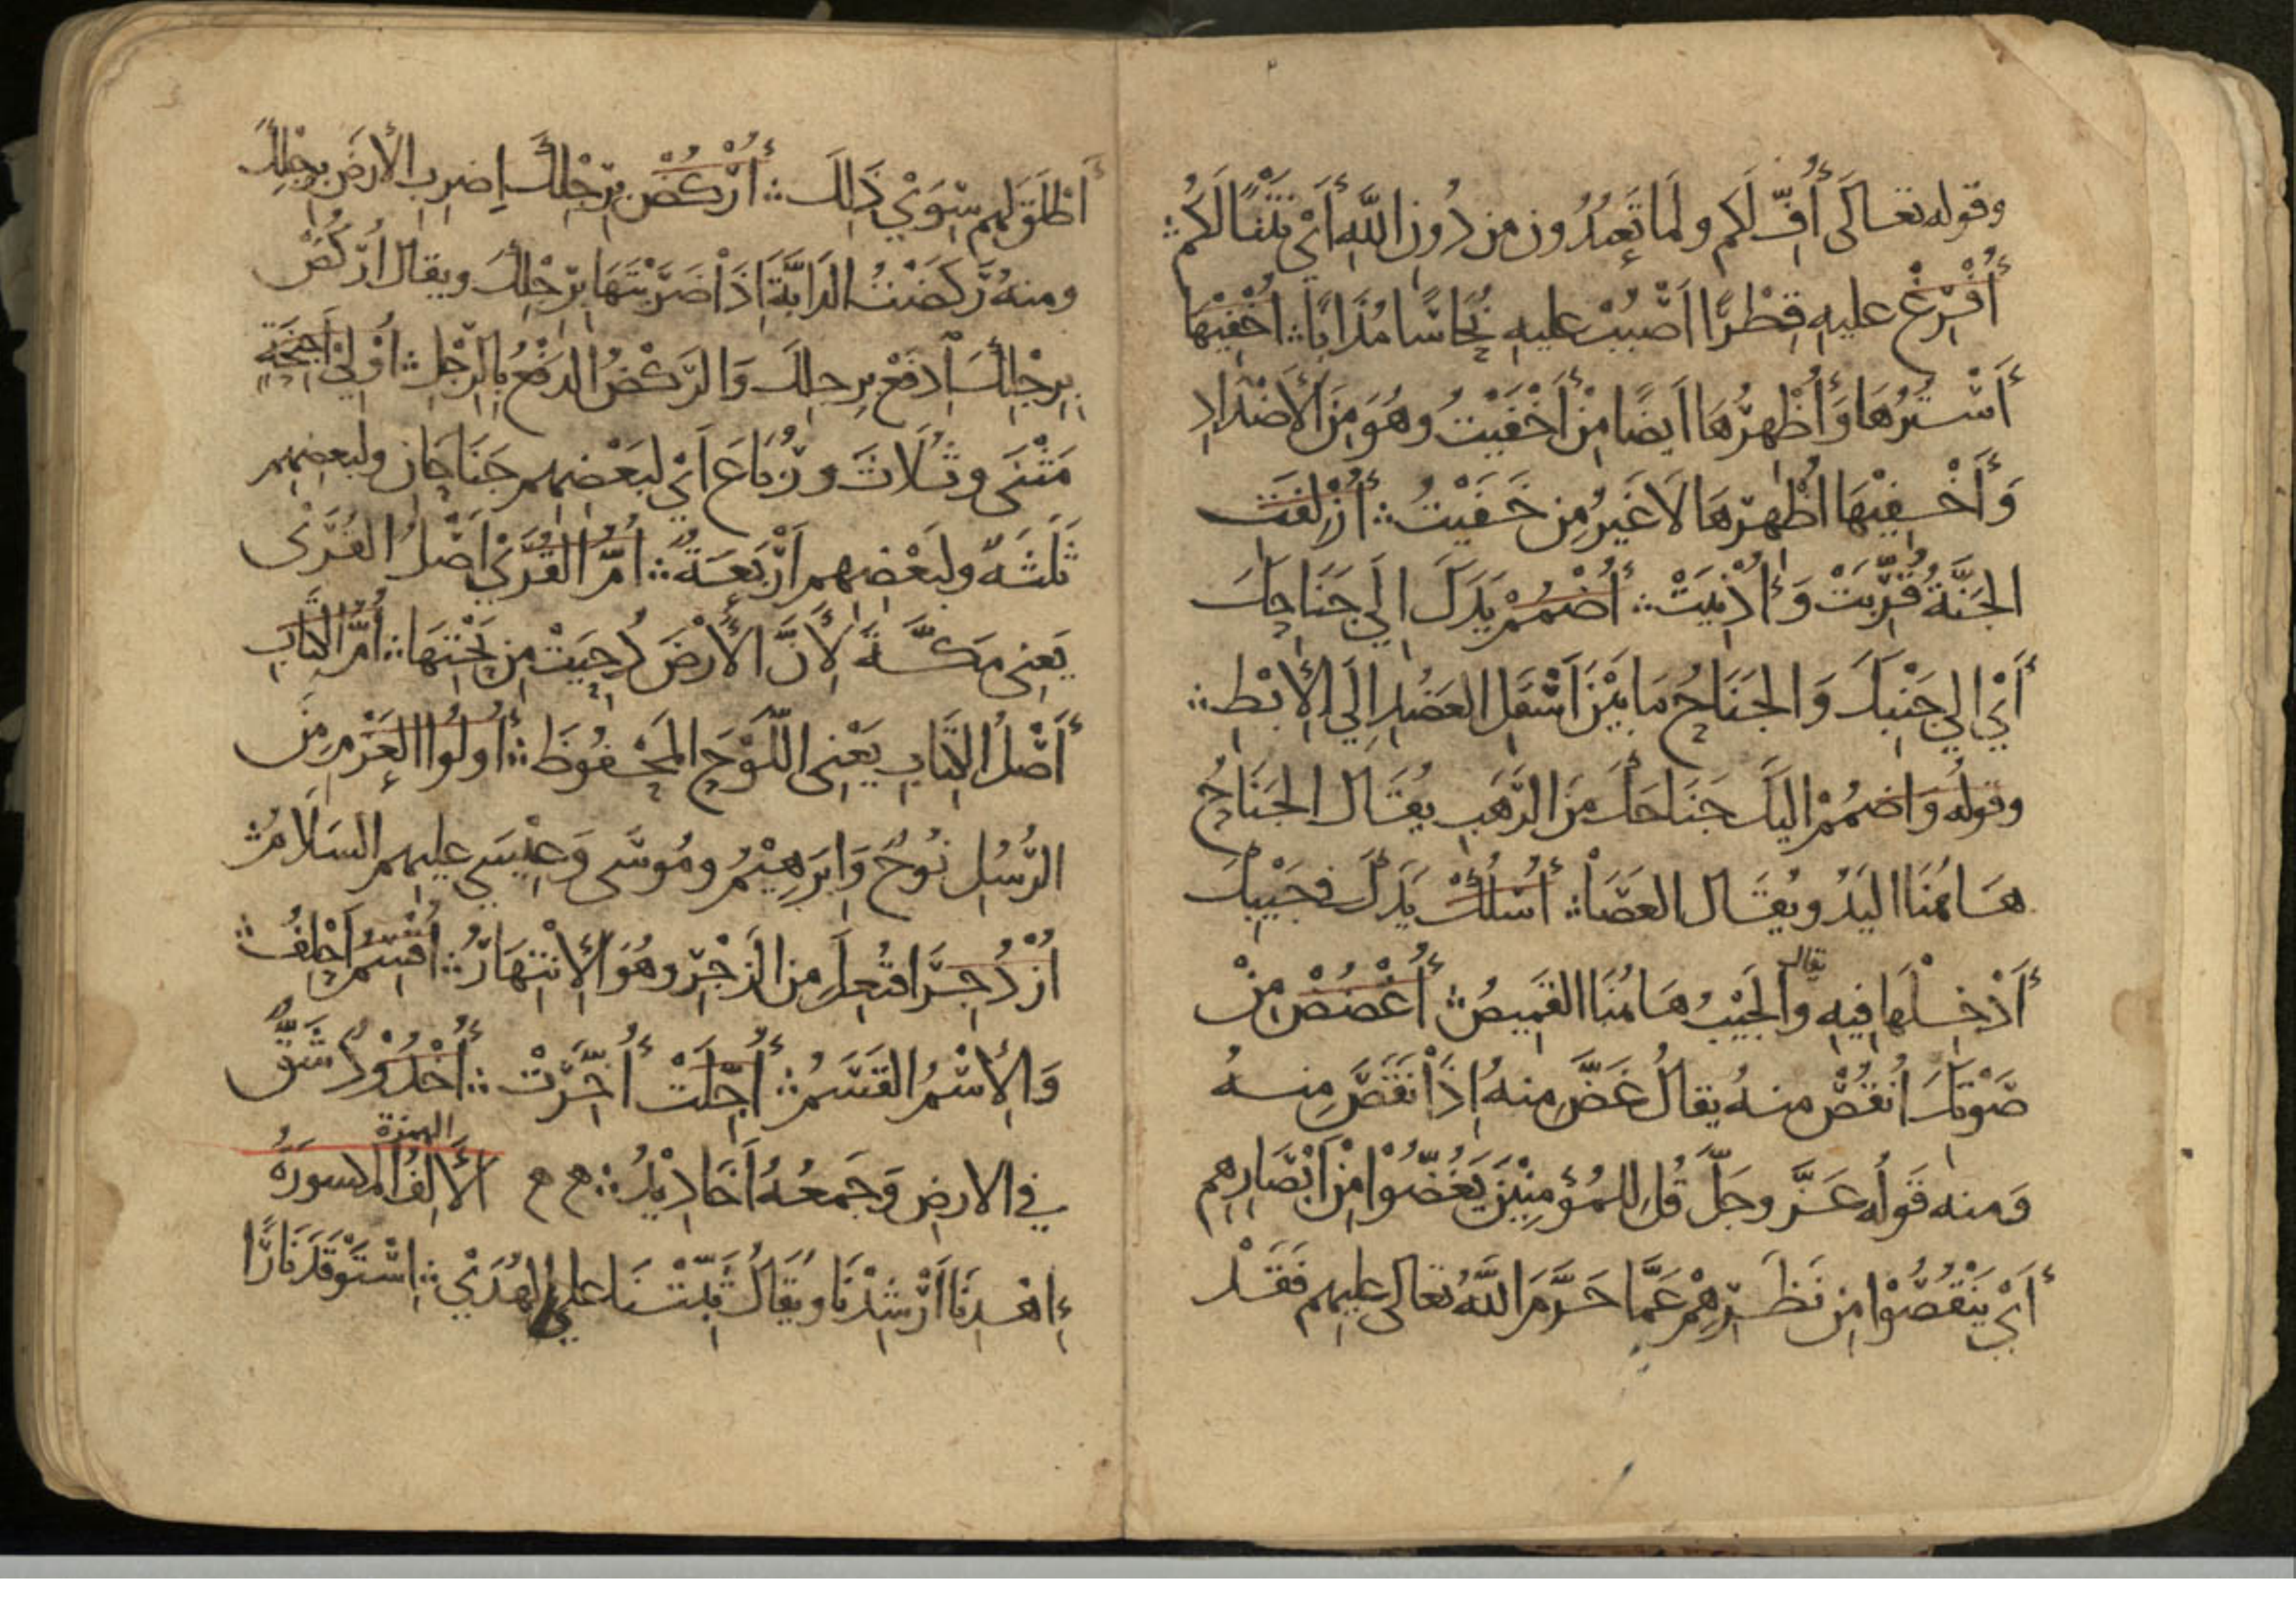 وقوله تعالى أُفٍّ لَكم ولمَا تَعبُدُون من دُونِ اللَّهِ أَيْ نَتْنًا لَكُمْ ؞
أُفْرِغْ عليهِ قِطْرًا أَصْبُبْ عليهِ نُحَاسًا مُذَابًا ؞ أُخْفِيْهَا
أَسْتُرُهَا وَأُظْهِرُهَا أَيضًا مِنْ أَخْفَيْتُ وهُوَ مِنَ الأَضْدَادِ
وَأَخْفِيْهَا أُظْهِرُهَا لَا غَيرُ مِن خَفَيْتُ ؞ أُزْلِفَتِ
الجَنَّةُ قُرِّبَتْ وَأُدْنِيَتْ ؞ أُضْمُمْ يَدَكَ إلَي جَنَاحِكَ
أَيْ إلي جَنْبِكَ وَالجَنَاحُ مَا بَيْنَ أَسْفَلِ العَضُدِ إِلَي الإِبْطِ ؞
وقولُه وَاضمُمْ اليكَ جَنَاحَكَ مِنَ الرَّهَبِ يُقَال الجَنَاحُ
هَاهُنَا اليَدُ ويُقَال العَصَا ؞ أُسْلُكْ يَدَكَ في جَيْبِكَ
أَدْخِلْهَا فِيهِ ويقال الجَيْبُ هَاهُنَا القَمِيصُ ؞ أُغْضُضْ مِنْ
صَوْتِكَ أُنْقُصْ منهُ يقالُ غَضَّ مِنهُ إِذَا نَقَصَ مِنهُ
وَمنه قَولُه عَزَّ وجَلَّ قُل لِلمُؤمِنِيْنَ يَغُضُّوْا مِنْ أَبْصَارِهِم
أَيْ يَنْقُصُوْا مِن نَظَرِهِمْ عَمَّا حَرَّمَ اللَّهُ تعالى عليهِم فَقَدْ
أَطْلَقَ لهم سِوَي ذَلِكَ ؞ أُرْكُضْ بِرِجْلِكَ إِضرِبِ الأَرضَ بِرِجلِكَ
ومنهُ رَكَضْتُ الدَابَّةَ إِذَا ضَرَبْتَهَا بِرِجْلِكَ ويقال أُرْكُضْ
بِرِجْلِكَ إِدفَعْ بِرِجلِكَ وَالرَّكْضُ الدَفْعُ بِالرِّجْلِ ؞ أُوْلِيْ أَجْنِحَةٍ
مَثْنَى وثُلَاثَ ورُبَاعَ أَيْ لِبَعْضِهِم جَنَاحَانِ ولبَعضِهِم
ثَلَثَهٌ ولِبَعْضِهِم أَرْبَعَةٌ ؞ أُمُّ القُرَيْ أَصْلُ القُرَى
يَعنِي مَكَّةَ لِأَنَّ الأَرْضَ دُحِيَتْ مِن تَحْتِهَا ؞ أُمُّ الكِتَابِ
أَصْلُ الكِتَابِ يَعْنِي اللَّوْحَ المَحْفُوظَ ؞ أُولُوا العَزْمِ مِنَ
الرُّسُلِ نُوحٌ وَإبرَهِيْمُ ومُوسَى وَعِيْسَي عليهِم السَلَامُ ؞
أُزْدُجِرَ افتُعِلَ مِن الزَجْرِ وهُوَ الإِنْتِهَارُ ؞ أُقْسِمُ أَحْلِفُ ؞
وَالإِسْمُ القَسَمُ ؞ أُجِّلَتْ أُخِّرَتْ ؞ أُخْدُوْدٌ شَقٌّ
في الارضِ وَجَمعُهُ أَخَادِيْدُ ؞ الأَلِفُ الهمزة المكسورَةُ
إِهْدِنَا أَرْشِدْنَا ويُقَالُ ثَبِّتْنَا علي الهُدَيْ ؞ إِسْتَوْقَدَ نَارًا